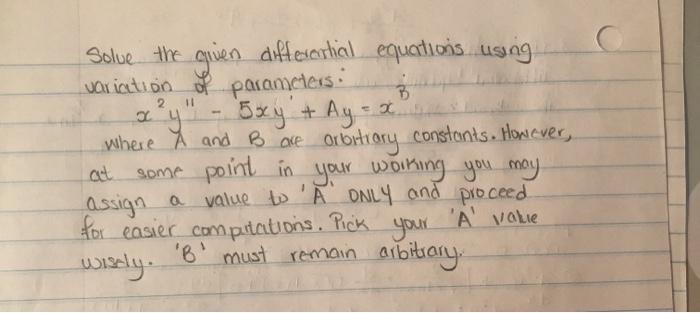 Solve the given differential equations using
variation of parameters:
x²y'' - 5xy' + Ay = x^B
where A and B are arbitrary constants. However,
at some point in your working you may
assign a value to 'A' ONLY and proceed
for easier computations. Pick your 'A' value
wisely. 'B' must remain arbitrary.